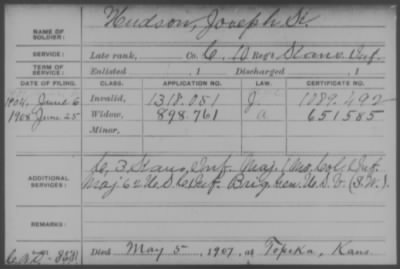 NAME OF SOLDIER: Hudson, Joseph K.
SERVICE: Late rank, Co. C, 10 Reg't Kans. Inf.
TERM OF SERVICE: Enlisted , 1 Discharged , 1
DATE OF FILING. CLASS. APPLICATION NO. LAW. CERTIFICATE NO.
1904, June 6 Invalid, 1318.051 J. 1089.492
1908 June 25 Widow, 898.761 a 651585
Minor,
ADDITIONAL SERVICES: C, 3 Kans, Inf. Maj. 1 Mo. Col. Inf.
Maj 62 U.S.C. Inf. Brig. Gen. U.S.V. (S.W.)
REMARKS:
Died May 5, 1907, at Topeka, Kans.